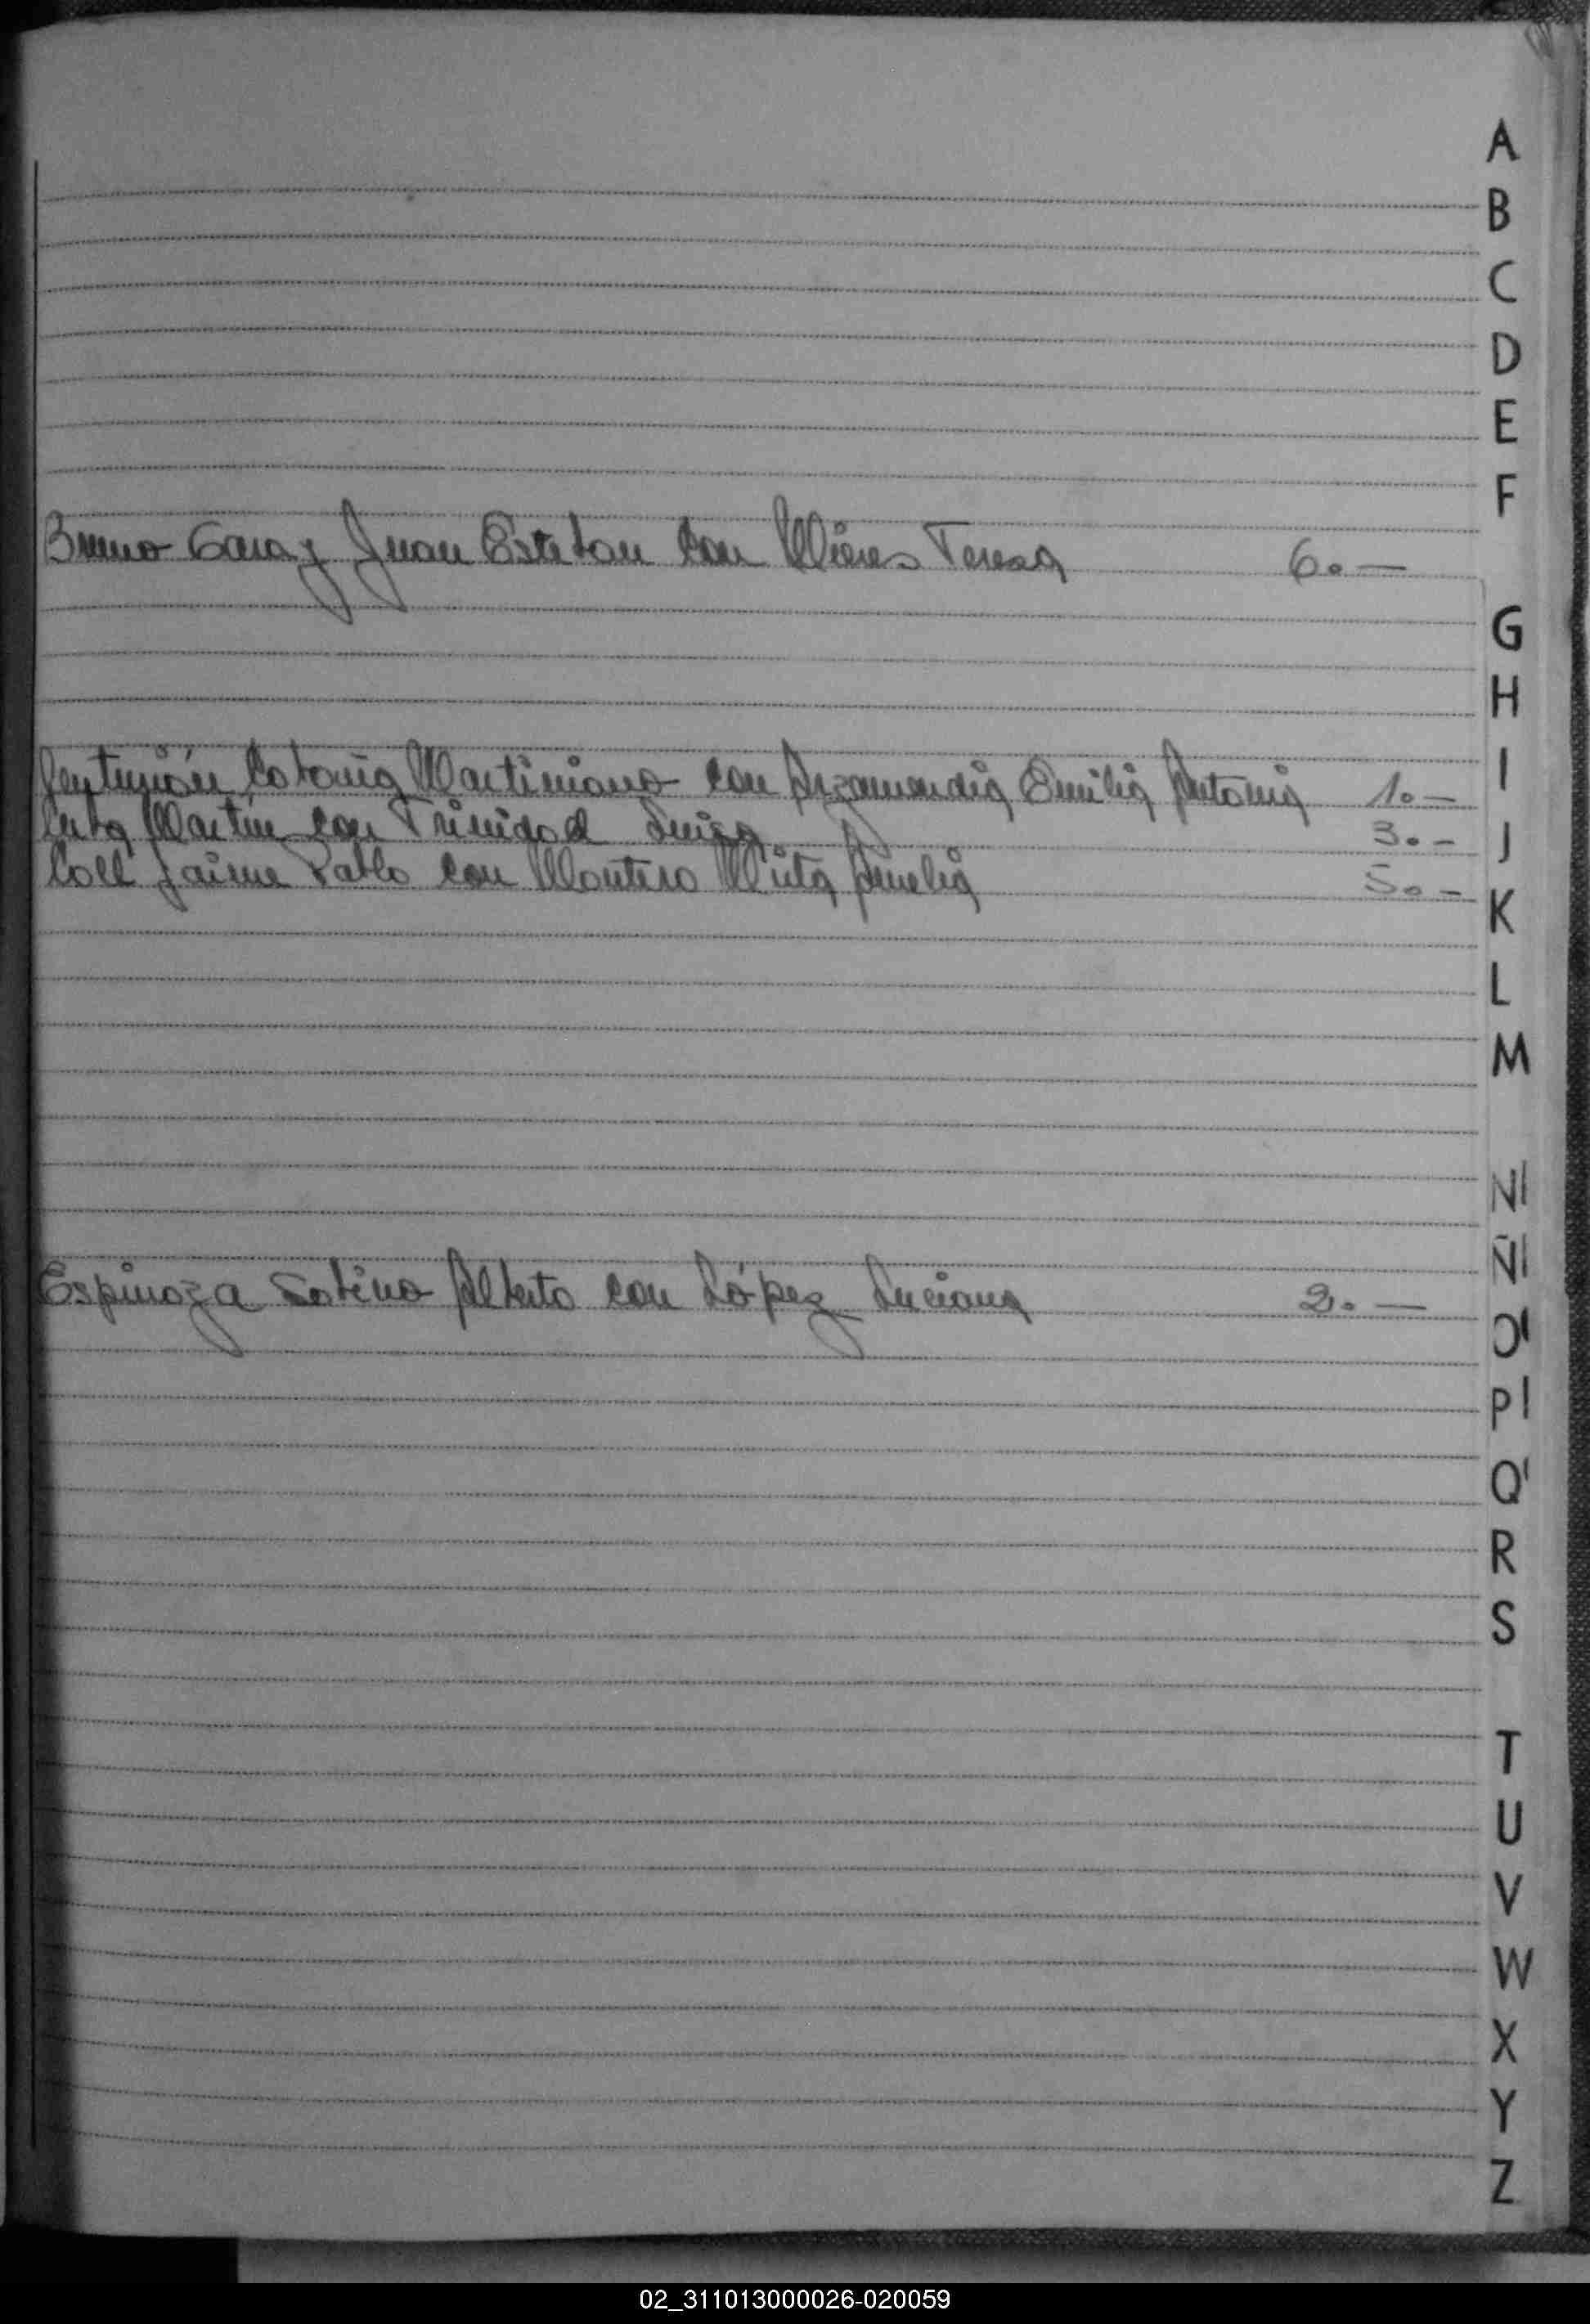 A
B
C
D
E
F
Bruno Garay Juan Esteban con Mieres Teresa 6.—
G
H
I
Centurión Cobania Martiniano con Arzamendia Emilia Antonia 1.—
Martín con Trinidad Luisa 3.—
J
Coll Jaime Pablo con Montero Mirta Amelia 5.—
K
L
M
N
Ñ
Espinoza Sabino Alberto con López Luciana 2.—
O
P
Q
R
S
T
U
V
W
X
Y
Z
02_311013000026-020059